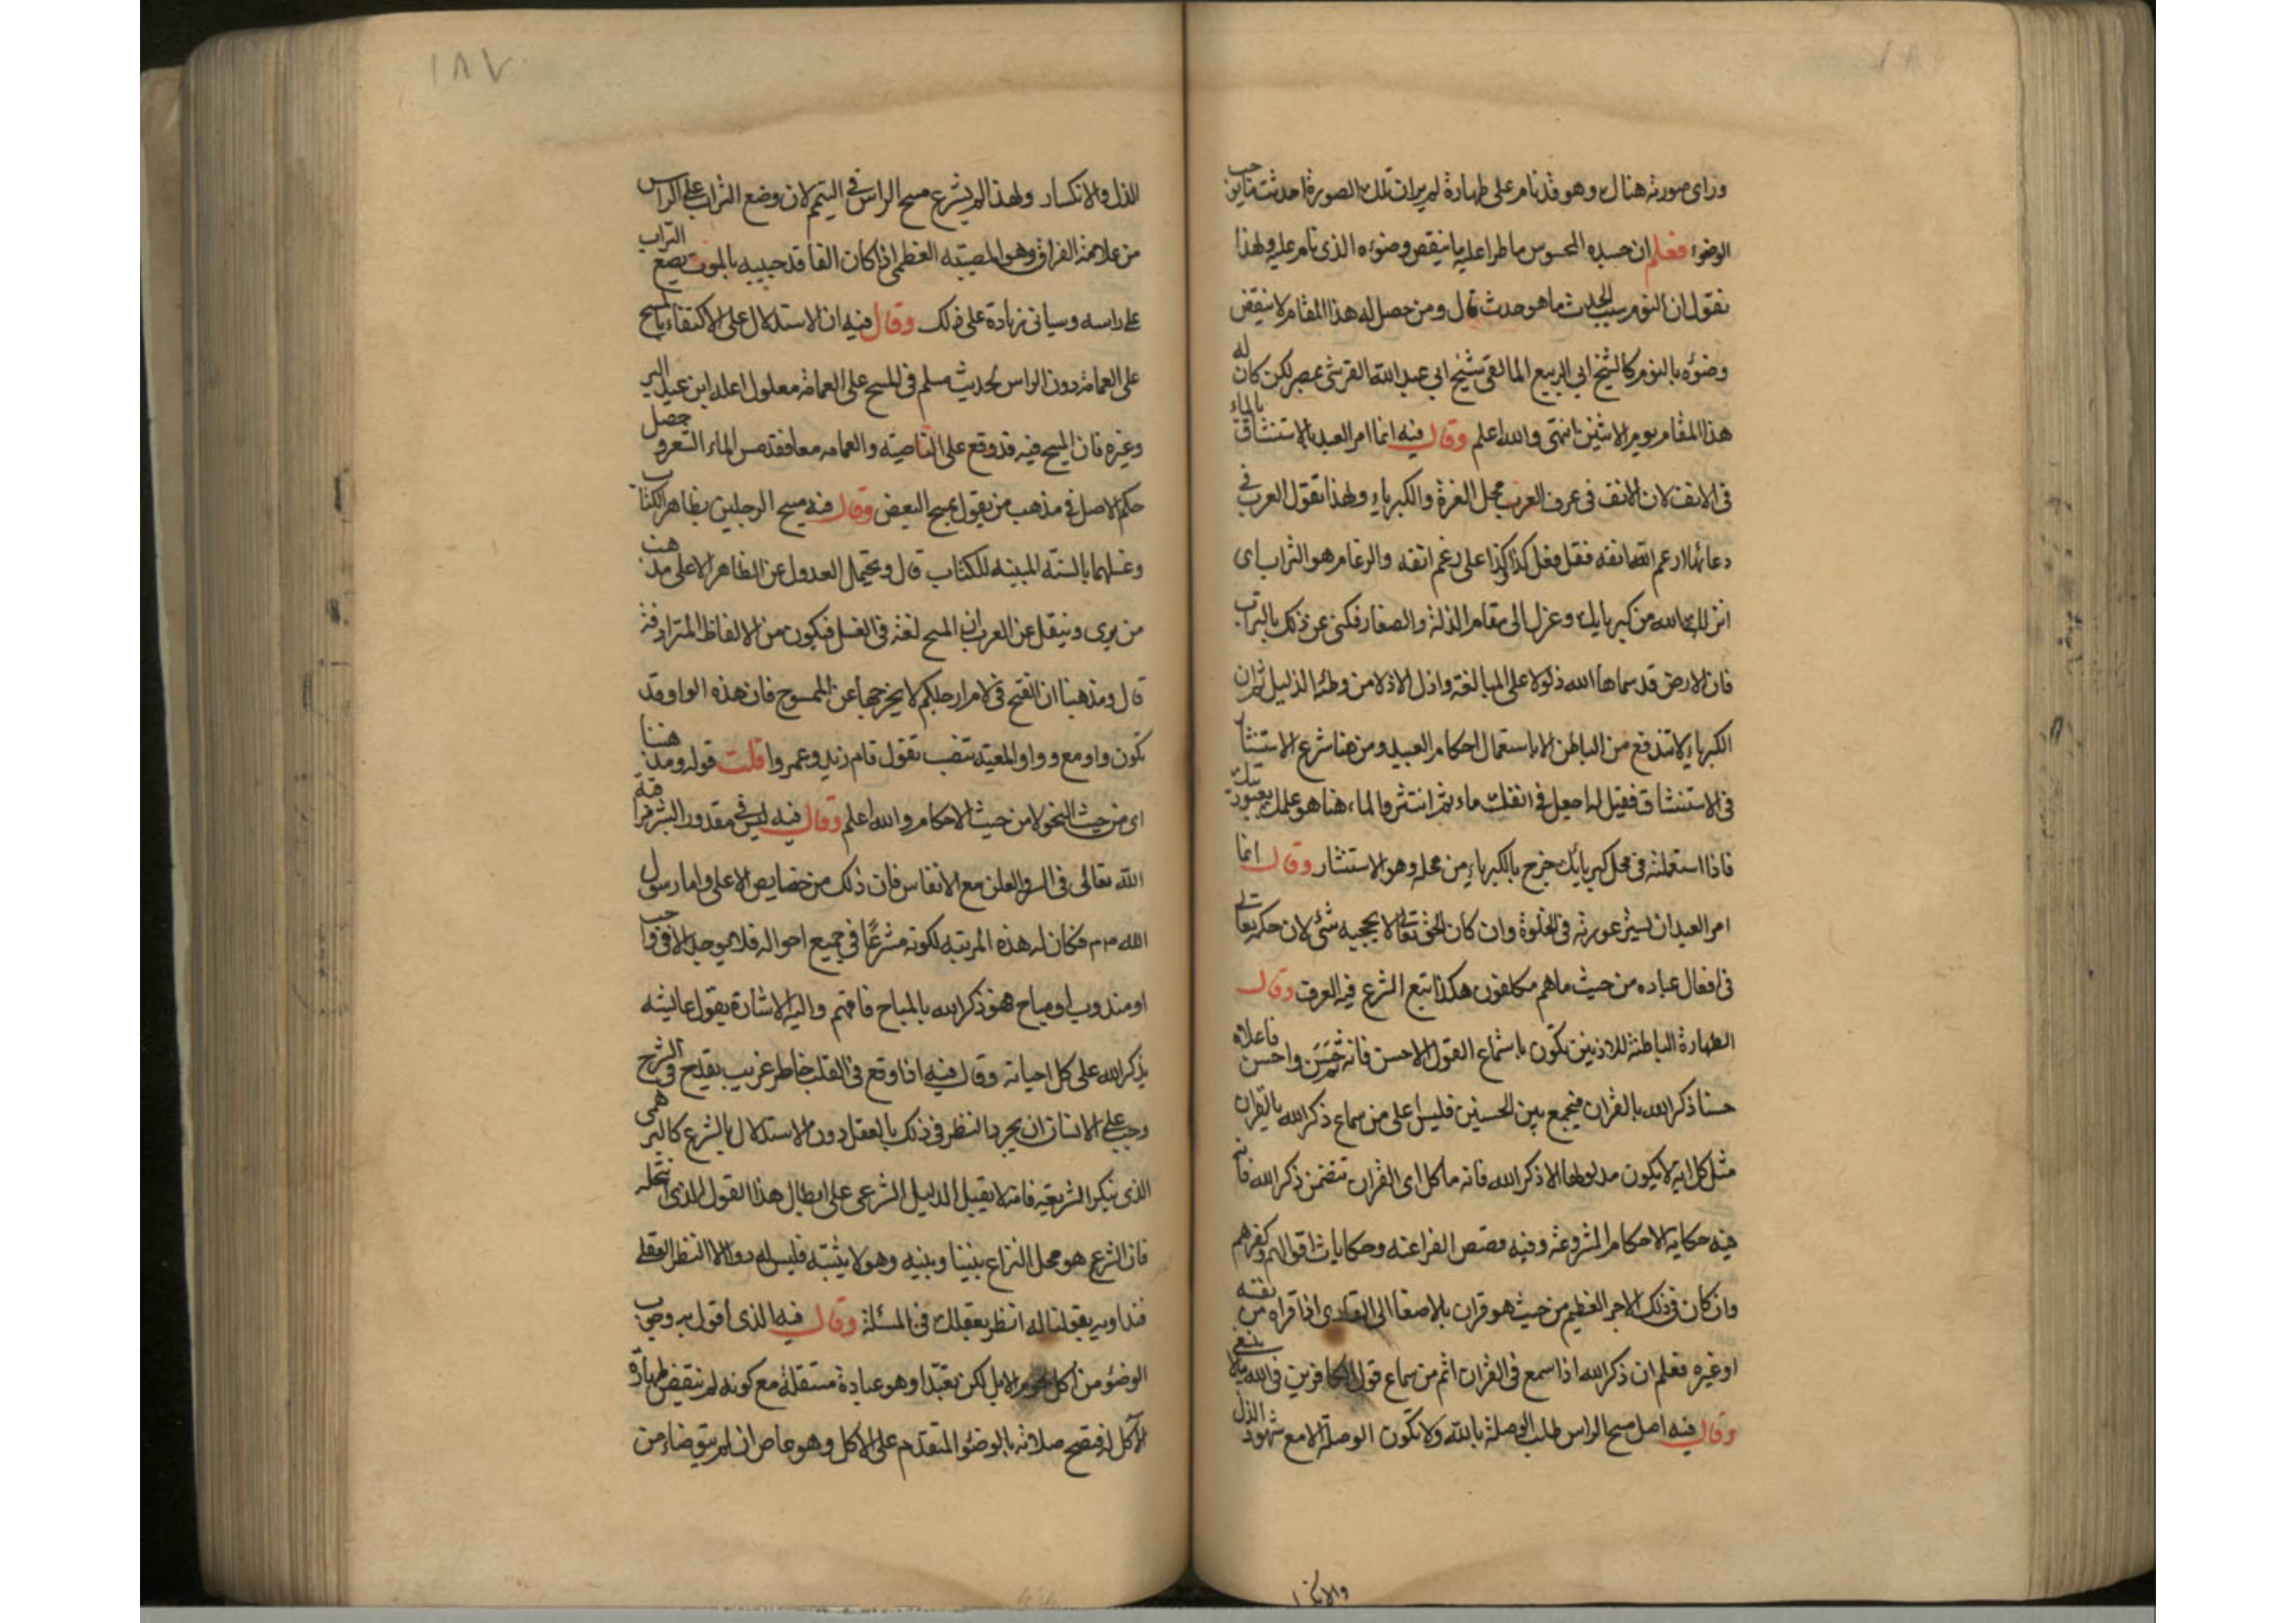 وراى صورته هنالك وهو قد نام على طهارة لم يران تلك الصورة احدثت مايوجب
الوضوء فعلم ان جسده المحسوس ما طرا عليه ما ينقض وضوءه الذى نام عليه ولهذا
نقول ان النوم سبب الحدث ما هو حدث قال ومن حصل له هذا المقام لا ينقض
وضوءه بالنوم كالشيخ ابى الربيع المالقى شيخ ابى عبد الله القرشى بمصر لكن كان له
هذا المقام يوم الاثنين انتهى والله اعلم وقال فيه انما امر العبد بالاستنشاق بالماء
فى الانف لان الانف فى عرف العرب محل العزة والكبرياء ولهذا تقول العرب فى
دعائها ارغم الله انفه فقل فعل كذا وكذا على رغم انفه والرغام هو التراب اى
انزلك الله من كبريايك وعزك الى مقام الذلة والصغار فكنى عن ذلك بالتراب
فان الارض قد سماها الله ذلولا على المبالغة واذل الاذلا من وطئه الذليل ثم ان
الكبرياء لا تندفع من الباطن الا باستعمال احكام العبيد ومن هنا شرع الاستنثار
فى الاستنشاق فقيل له اجعل فى انفك ماء ثم انتثر والماء هنا هو علمك بعبوديتك
فاذا استعملته فى محل كبريائك خرج بالكبرياء من محله وهو الاستنثار وقال انما
امر العبد ان يستر عورته فى الخلوة وان كان الحق تعالى لا يحجبه شئ لان حكمه تعالى
فى افعال عباده من حيث ما هم مكلفون هكذا تبع الشرع فيه العرف وقال
الطهارة الباطنة للاذنين تكون باستماع القول الاحسن فانه ثم حسن واحسن فاعلاه
حسنا ذكر الله بالقران فيجمع بين الحسنين فليس اعلى من سماع ذكر الله بالقران
مثل كل اية لا يكون مدلولها الا ذكر الله فانه ما كل اى القران تتضمن ذكر الله فانه
فيه حكاية الاحكام المشروعة وفيه قصص الفراعنه وحكايات اقوالهم وكفرهم
وان كان فى ذلك الاجر العظيم من حيث هو قران بالاصغا الى القارى اذا قراه من نفسه
او غيره فعلم ان ذكر الله اذا سمع فى القران اتم من سماع قول الكافرين فى الله مالا ينبغى
وقال فيه اصل مسح الراس طلب الوصلة بالله ولا تكون الوصلة الا مع شهود الذل
١٨٧
الذل والانكسار ولهذا لم يشرع مسح الراس فى التيمم لان وضع التراب على الراس
من علامة الفراق وهو المصيبة العظمى اذا كان الفاقد حبيبه بالموت يضع التراب
على راسه وسياتى زيادة على ذلك وقال فيه ان الاستدلال على الاكتفاء بالمسح
على العمامة دون الراس لحديث مسلم فى المسح على العمامة معلول اعله ابن عبد البر
وغيره فان المسح فيه قد وقع على الناصية والعمامه معا فقد مس الماء الشعر وحصل
حكم الاصل فى مذهب من يقول بمسح البعض وقال فيه مسح الرجلين بظاهر الكتاب
وغسلهما بالسنة المبينه للكتاب قال ويحتمل العدول عن الظاهر الا على مذهب
من يرى وينقل عن العرب ان المسح لغة فى الغسل فيكون من الالفاظ المترادفة
قال ومذهبنا ان الفتح فى لام ارجلكم لا يخرجها عن الممسوح فان هذه الواو قد
تكون واو مع وواو المعية تنصب تقول قام زيد وعمروا قلت قوله ومذهبنا
اى من حيث النحو لا من حيث الاحكام والله اعلم وقال فيه ليس فى مقدور البشر مراقبة
الله تعالى فى السر والعلن مع الانفاس فان ذلك من خصايص الاعلى واما رسول
الله صم فكان له هذه المرتبة لكونه مشرعا فى جميع احواله فلا يوجد الا فى واجب
او مندوب او مباح فهو ذكر الله بالمباح فافهم واليه الاشارة بقول عايشه
يذكر الله على كل احيانه وقال فيه اذا وقع فى القلب خاطر غريب يقدح فى الشرع
وجب على الانسان ان يجرد النظر فى ذلك بالعقل دون الاستدلال بالشرع كالبرهمى
الذى ينكر الشريعة فانه لا يقبل الدليل الشرعى على ابطال هذا القول الذى انتحله
فان الشرع هو محل النزاع بيننا وبينه وهو لا يثبته فليس له دوا الا النظر العقلى
فنداويه بقولنا له انظر بعقلك فى المسئلة وقال فيه الذى اقول به وجوب
الوضوء من اكل لحوم الابل لكن تعبدا وهو عبادة مستقلة مع كونه لم تنقض طهارة
الآكل له فتصح صلاته بالوضوء المتقدم على الاكل وهو عاص ان لم يتوضاء من